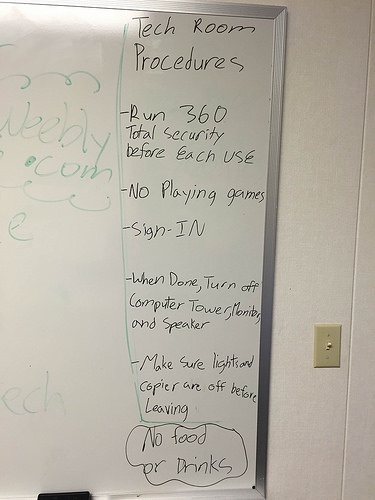 Tech Room
Procedures
-Run 360
Total security
before Each USE
-No Playing games
-Sign-IN
-When Done, Turn off
Computer Tower, Monitor,
and Speaker
-Make Sure lights and
Copier are off before
Leaving
No food
or Drinks
Weebly
.com
e
ech